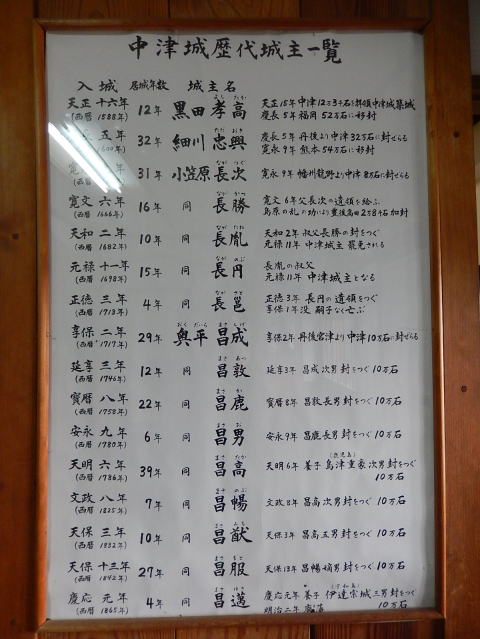 中津城歴代城主一覧
入城 居城年数 城主名
天正十六年 (西暦 1588年) 12年 黒田孝高 よし たか 天正15年中津12万3千石を拝領中津城築城
慶長5年福岡52万石に移封
五年 1600年) 32年 細川忠興 ただ おき 慶長5年丹後より中津32万石に封せらる
寛永9年熊本54万石に移封
(西暦 31年 小笠原長次 なが つぐ 寛永9年播州龍野より中津8万石に封せらる
寛文六年 (西暦 1666年) 16年 同 長勝 なが かつ 寛文6年父長次の遺領を給ふ
島原の乱の功により豊後高田2万8千石加封
天和二年 (西暦 1682年) 10年 同 長胤 なが たね 天和2年叔父長勝の封をつぐ
元禄11年中津城主罷免される
元禄十一年 (西暦 1698年) 15年 同 長円 なが のぶ 長胤の叔父
元禄11年中津城主となる
正徳三年 (西暦 1713年) 4年 同 長邕 なが さと 正徳3年長円の遺領をつぐ
享保1年没嗣子なく亡ぶ
享保二年 (西暦 1717年) 29年 奥平昌成 おく だいら まさ しげ 享保2年丹後宮津より中津10万石に封せらる
延享三年 (西暦 1746年) 12年 同 昌敦 まさ あつ 延享3年昌成次男封をつぐ10万石
寳暦八年 (西暦 1758年) 22年 同 昌鹿 まさ か 寳暦8年昌敦長男封をつぐ10万石
安永九年 (西暦 1780年) 6年 同 昌男 まさ お 安永9年昌鹿長男封をつぐ10万石
天明六年 (西暦 1786年) 39年 同 昌高 まさ たか 天明6年養子島津重豪次男封をつぐ (鹿児島)
10万石
文政八年 (西暦 1825年) 7年 同 昌暢 まさ のぶ 文政8年昌高次男封をつぐ10万石
天保三年 (西暦 1832年) 10年 同 昌猷 まさ みち 天保3年昌高五男封をつぐ10万石
天保十三年 (西暦 1842年) 27年 同 昌服 まさ もと 天保13年昌暢嫡男封をつぐ10万石
慶応元年 (西暦 1865年) 4年 同 昌邁 まさ ゆき 慶応元年養子伊達宗城三男封をつぐ (宇和島)
明治二年 10万石